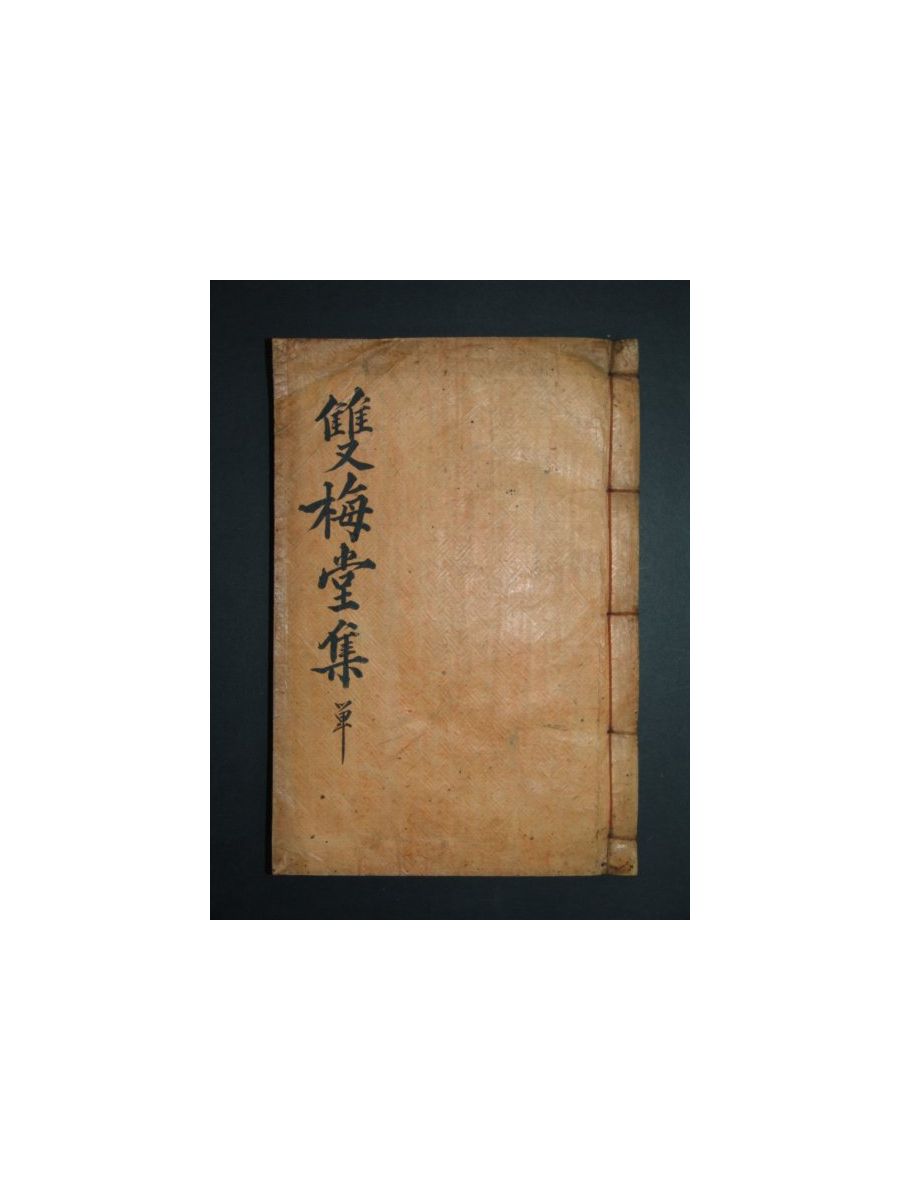 雙梅堂集 単